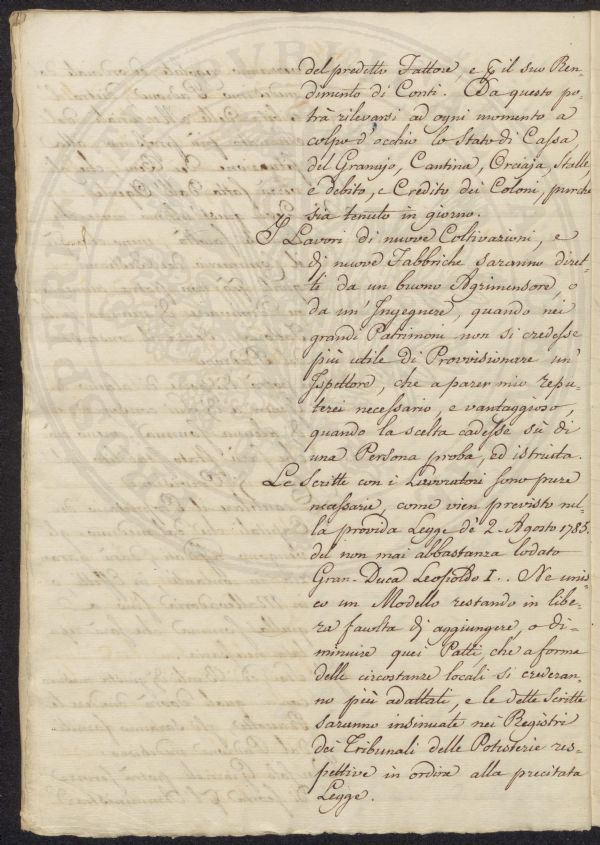 del predetto Fattore, e p il suo Ren-
dimento di Conti. Da questo po-
trà rilevarsi ad ogni momento a
colpo d'occhio lo Stato di Cassa,
del Granajo, Cantina, Orciaja, Stalle,
e debito, e Credito dei Coloni, purche
sia tenuto in giorno.
I Lavori di nuove Coltivazioni, e
di nuove Fabbriche saranno diret-
ti da un buono Agrimensore, o
da un' Ingegnere, quando nei
grandi Patrimonj non si credesse
più utile di Provvisionare un'
Ispettore, che a parer mio repu-
terei necessario, e vantaggioso,
quando la scelta cadesse sù di
una Persona proba, ed istruita.
Le Scritte con i Lavoratori sono pure
necessarie, come vien previsto nel-
la provida Legge de 2. Agosto 1785.
del non mai abbastanza lodato
Gran-Duca Leopoldo I.. Ne unis-
co un Modello restando in libe-
ra facoltà di aggiungere, o di-
minuire quei Patti, che a forma
delle circostanze locali si crederan-
no più adattati, e le dette Scritte
saranno insinuate nei Registri
dei Tribunali delle Potesterie res-
pettive in ordine alla precitata
Legge.